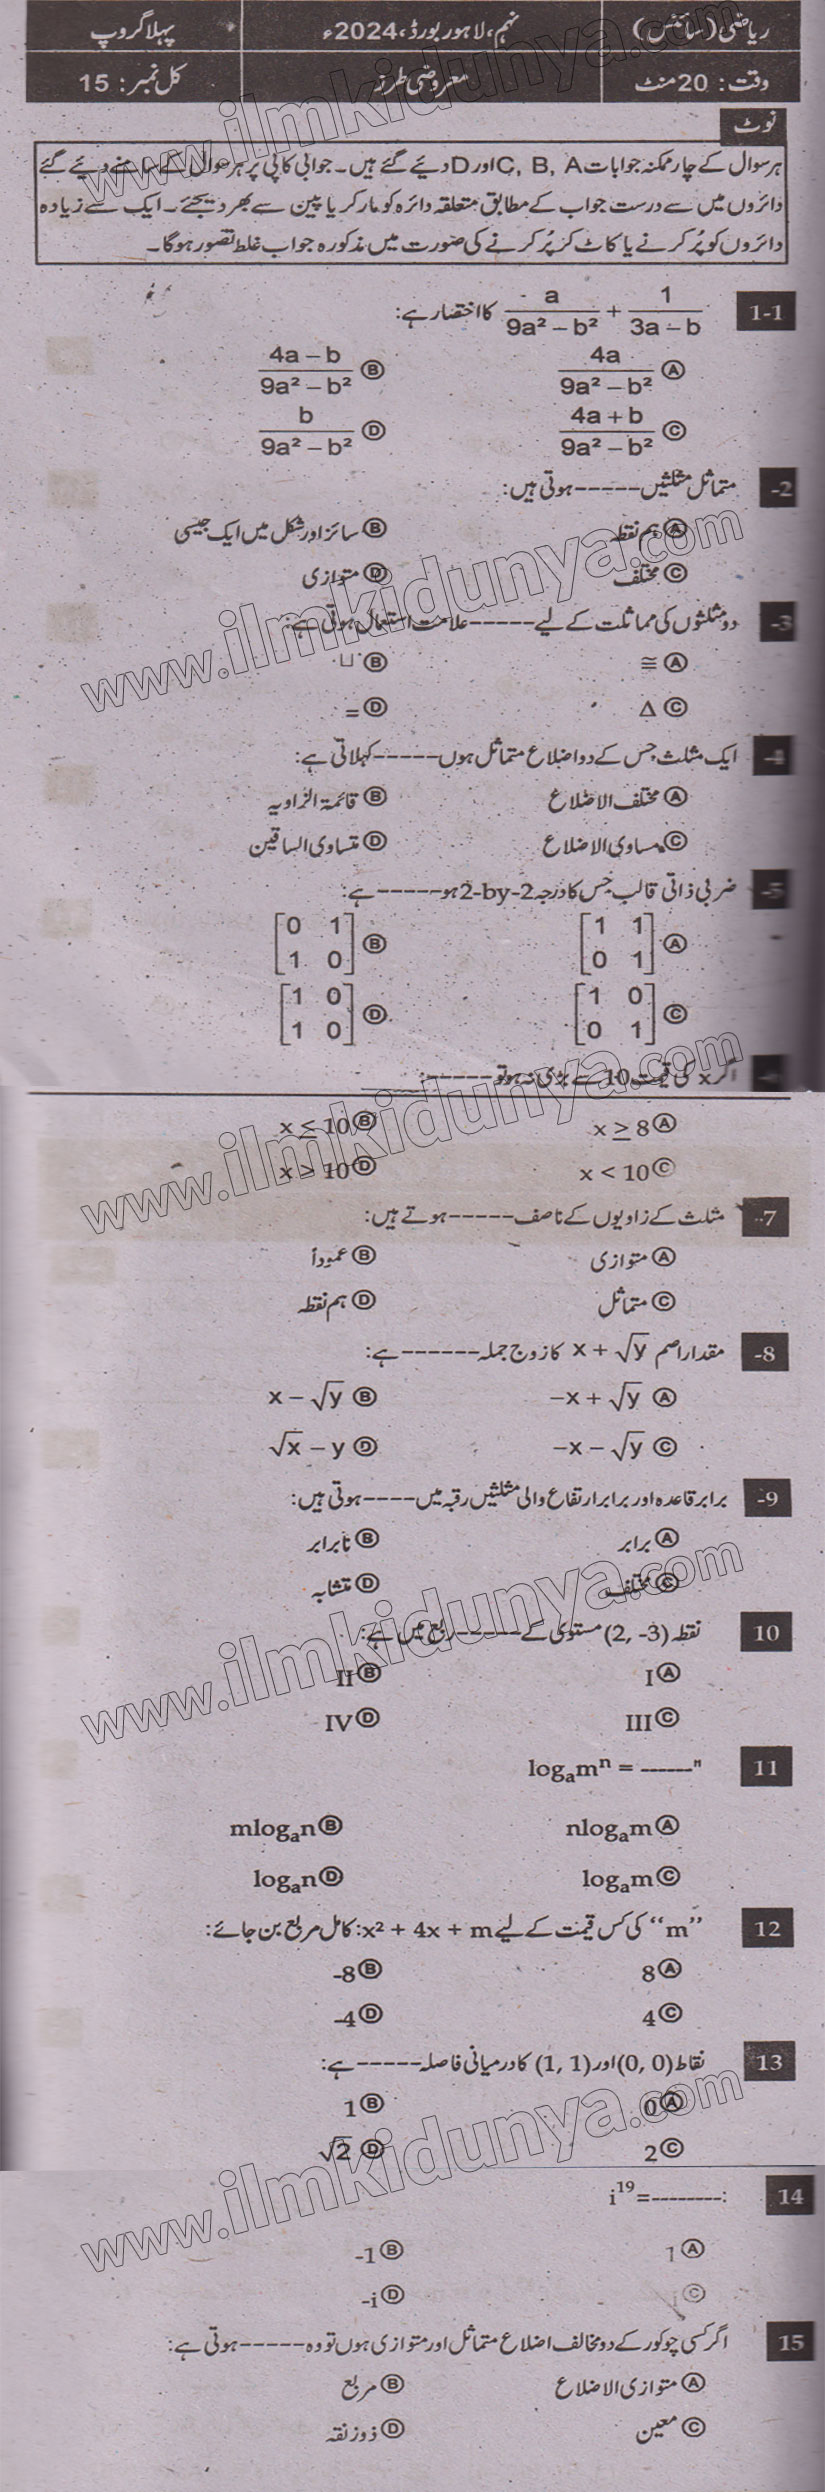 ریاضی (سائنس) نہم، لاہور بورڈ، 2024ء پہلا گروپ
وقت: 20 منٹ معروضی طرز کل نمبر: 15
نوٹ
ہر سوال کے چار ممکنہ جوابات A، B، C اور D دیے گئے ہیں۔ جوابی کاپی پر ہر سوال کے سامنے دیئے گئے
دائروں میں سے درست جواب کے مطابق متعلقہ دائرہ کو مارکر یا پین سے بھر دیجئے۔ ایک سے زیادہ
دائروں کو پُر کرنے یا کاٹ کر پُر کرنے کی صورت میں مذکورہ جواب غلط تصور ہوگا۔
1-1 a/(9a² – b²) + 1/(3a – b) کا اختصار ہے:
Ⓐ 4a/(9a² – b²) Ⓑ (4a – b)/(9a² – b²)
Ⓒ (4a + b)/(9a² – b²) Ⓓ b/(9a² – b²)
-2 متماثل مثلثیں ----- ہوتی ہیں:
Ⓐ ہم نقطہ Ⓑ سائز اور شکل میں ایک جیسی
Ⓒ مختلف Ⓓ متوازی
-3 دو مثلثوں کی مماثلت کے لیے ----- علامت استعمال ہوتی ہے:
Ⓐ ≅ Ⓑ ⊔
Ⓒ Δ Ⓓ =
-4 ایک مثلث جس کے دو اضلاع متماثل ہوں ----- کہلاتی ہے:
Ⓐ مختلف الاضلاع Ⓑ قائمۃ الزاویہ
Ⓒ مساوی الاضلاع Ⓓ متساوی الساقین
-5 ضربی ذاتی قالب جس کا درجہ 2-by-2 ہو ----- ہے:
Ⓐ [1 1; 0 1] Ⓑ [0 1; 1 0]
Ⓒ [1 0; 0 1] Ⓓ [1 0; 1 0]
اگر x کی قیمت 10 سے بڑی نہ ہو تو -----:
Ⓐ x ≥ 8 Ⓑ x ≤ 10
Ⓒ x < 10 Ⓓ x > 10
-7 مثلث کے زاویوں کے ناصف ----- ہوتے ہیں:
Ⓐ متوازی Ⓑ عموداً
Ⓒ متماثل Ⓓ ہم نقطہ
-8 مقدار اصم x + √y کا زوج جملہ ------ ہے:
Ⓐ –x + √y Ⓑ x – √y
Ⓒ –x – √y Ⓓ √x – y
-9 برابر قاعدہ اور برابر ارتفاع والی مثلثیں رقبہ میں ---- ہوتی ہیں:
Ⓐ برابر Ⓑ نابرابر
Ⓒ مختلف Ⓓ متشابہ
10 نقطہ (2, -3) مستوی کے ----- ربع میں ہے:
Ⓐ I Ⓑ II
Ⓒ III Ⓓ IV
11 logₐmⁿ = ------"
Ⓐ nlogₐm Ⓑ mlogₐn
Ⓒ logₐm Ⓓ logₐn
12 ”m“ کی کس قیمت کے لیے x² + 4x + m: کامل مربع بن جائے:
Ⓐ 8 Ⓑ -8
Ⓒ 4 Ⓓ -4
13 نقاط (0, 0) اور (1, 1) کا درمیانی فاصلہ ----- ہے:
Ⓐ 0 Ⓑ 1
Ⓒ 2 Ⓓ √2
14 i¹⁹ =--------:
Ⓐ 1 Ⓑ -1
Ⓒ i Ⓓ -i
15 اگر کسی چوکور کے دو مخالف اضلاع متماثل اور متوازی ہوں تو وہ ----- ہوتی ہے:
Ⓐ متوازی الاضلاع Ⓑ مربع
Ⓒ معین Ⓓ ذوزنقہ
www.ilmkidunya.com
www.ilmkidunya.com
www.ilmkidunya.com
www.ilmkidunya.com
www.ilmkidunya.com